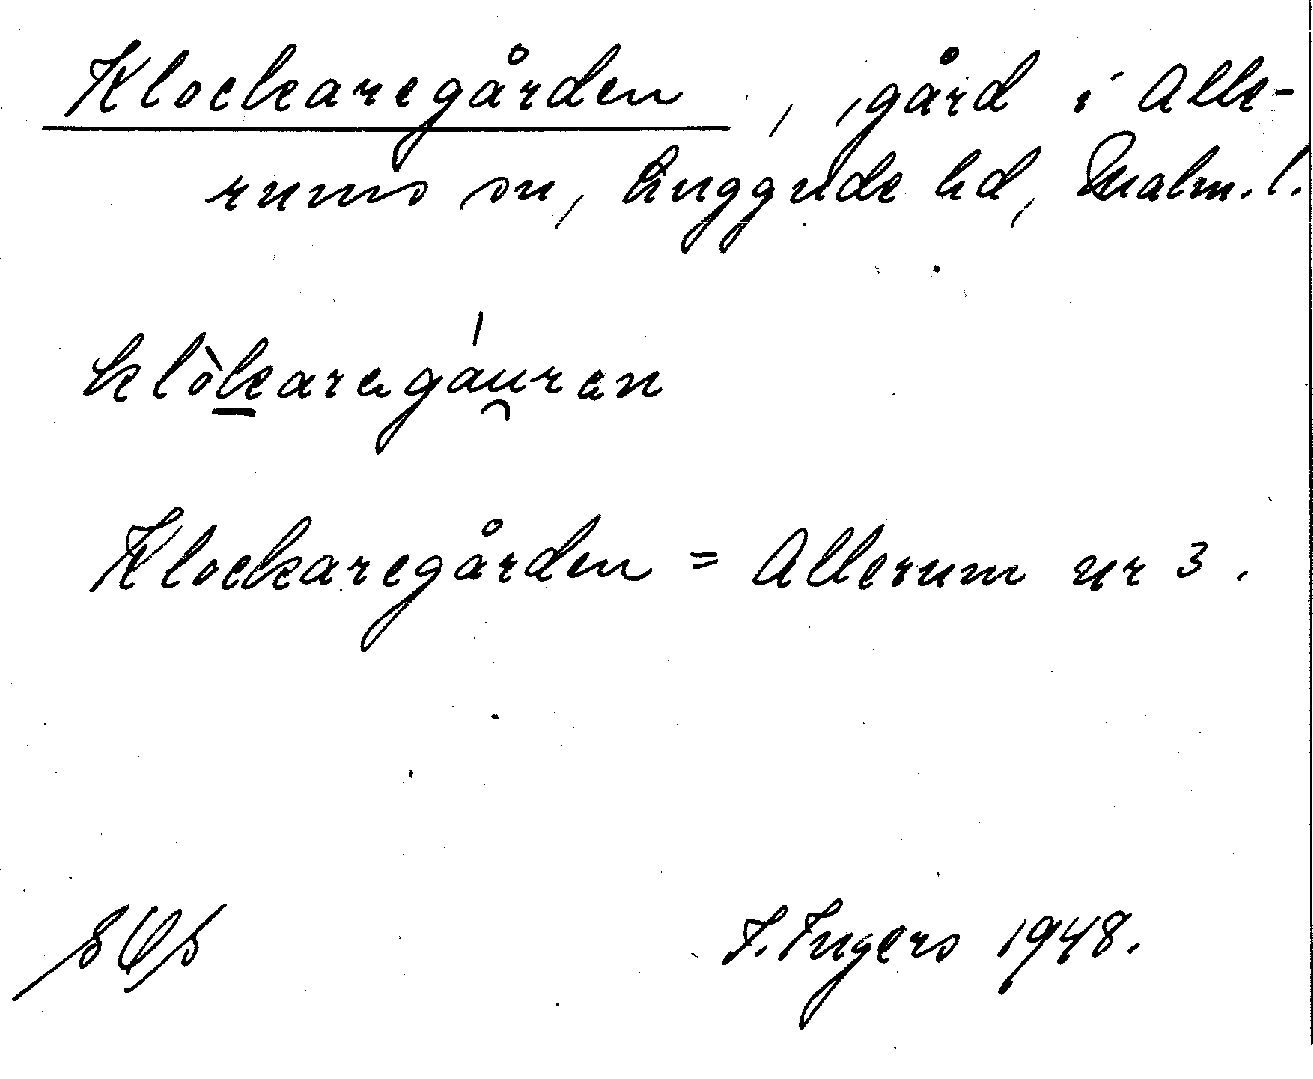 Klockaregården, gård i Alle-
rums sn, Luggude hd, Malm. l.
klòkaregáuren
Klockaregården = Allerum nr 3.
I. Ingers 1948.